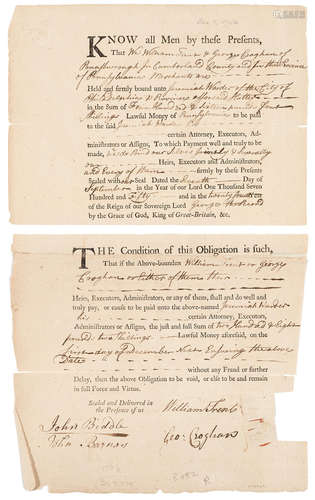 KNOW all Men by these Presents,
That We William Trent & George Croghan of
Pennsborough in Cumberland County and in the Province
of Pennsylvania Merchants are
Held and firmly bound unto Jeremiah Warder of the City of
Philadelphia &
in the Sum of Four Hundred & Sixteen pounds four
Shillings Lawful Money of Pennsylvania to be paid
to the said Jeremiah
certain Attorney, Executors, Admi-
nistrators or Assigns, To which Payment well and truly to be
made, We do Bind our Selves jointly & severally
Heirs, Executors and Administrators,
and Every of them firmly by these Presents
Sealed with our Seal Dated the Day of
September in the Year of our Lord One Thousand Seven
Hundred and Fifty and in the twenty fourth
of the Reign of our Sovereign Lord George the Second
by the Grace of God, King of Great-Britain, &c.
THE Condition of this Obligation is such,
That if the Above-bounden William Trent or George
Croghan or Either of them their
Heirs, Executors, Administrators, or any of them, shall do well and
truly pay, or cause to be paid unto the above-named Jeremiah Warder
his certain Attorney, Executors, Admi-
nistrators or Assigns, the just and full Sum of two Hundred & Eight
pounds two Shillings Lawful Money aforesaid, on the
first day of December Next Ensuing the above
Date
without any Fraud or further
Delay, then the above Obligation to be void, or else to be and remain
in full Force and Virtue.
Sealed and Delivered in
the Presence of us
William Trent
John Biddle
John Barnes
Geo: Croghan